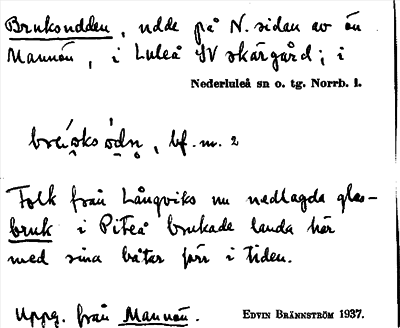 Bruksudden, udde på N. sidan av ön
Mannön, i Luleå SV skärgård; i
Nederluleå sn o. tg. Norrb. l.
, bf. m. 2
Folk från Långviks nu nedlagda glas-
bruk i Piteå brukade landa här
med sina båtar förr i tiden.
Uppg. från Mannön. EDVIN BRÄNNSTRÖM 1937.